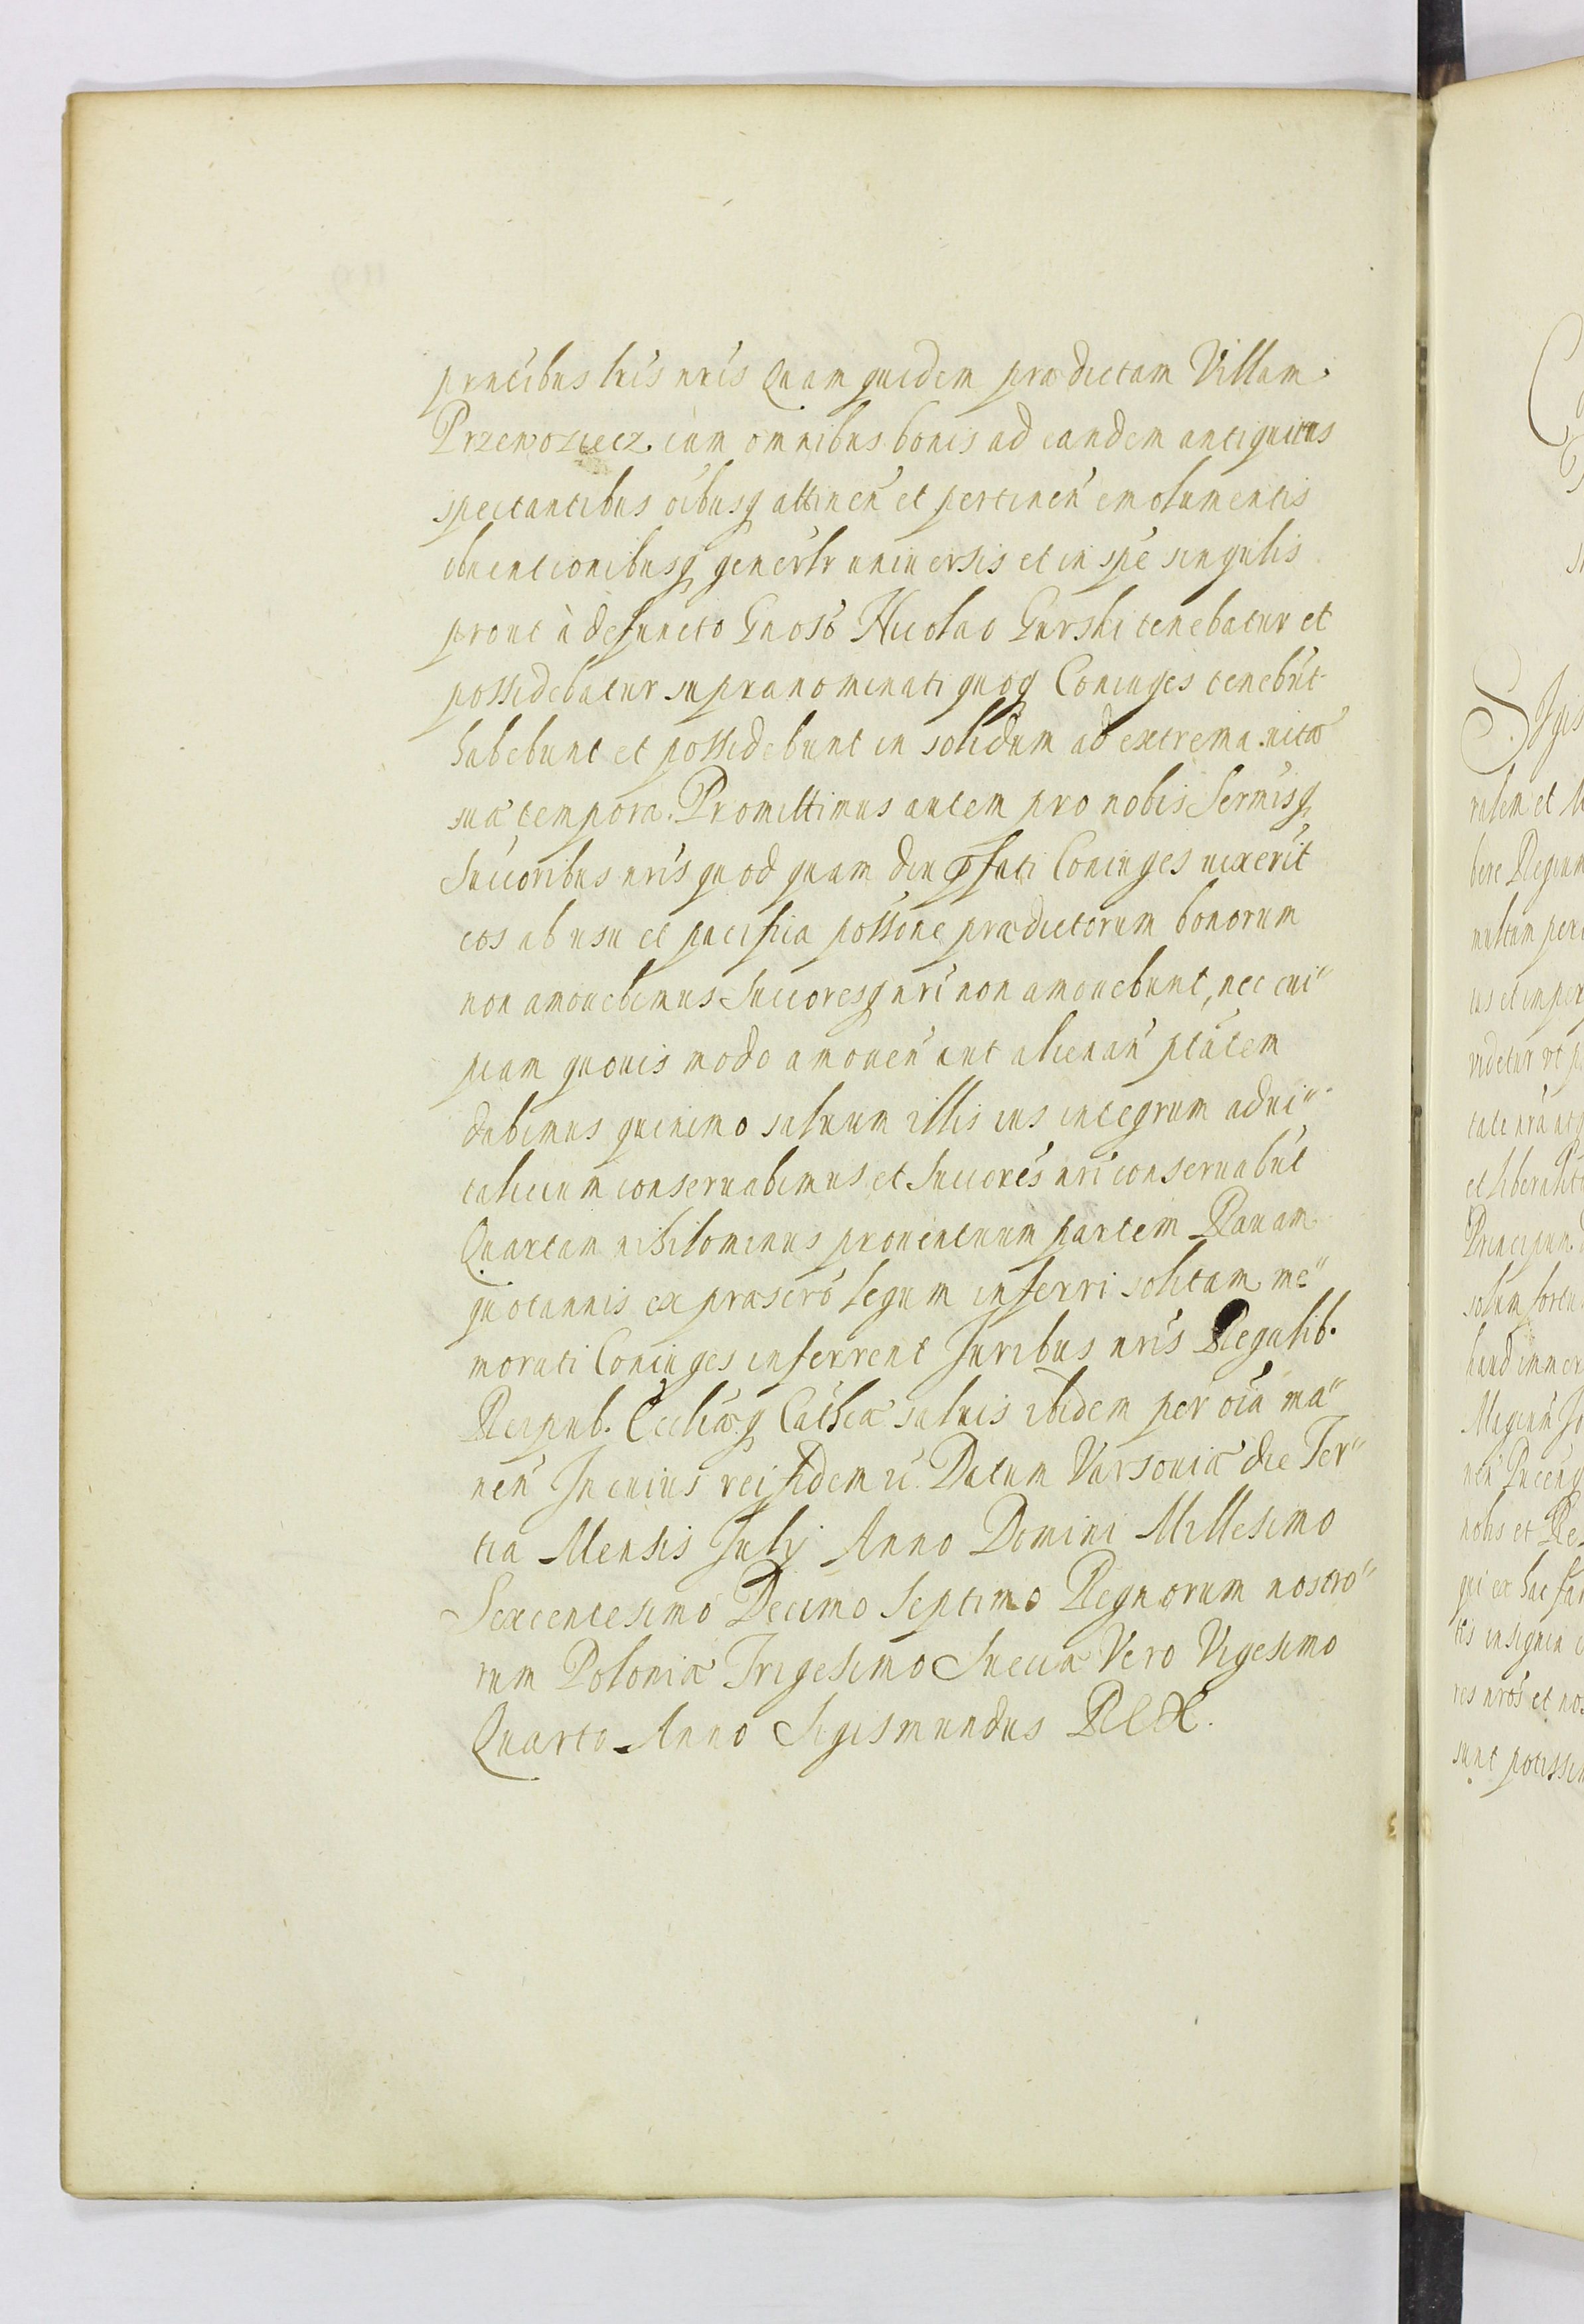 prntibus lris nris Quam quidem prædictam Villam
Przewoziecz cum omnibus bonis ad eandem antiquitus
spectantibus oibusq attinen et pertinen emolumentis
obuentionibusq generlr uniuersis et in spe singulis
prout à defuncto Gnoso Nicolao Gurski tenebatur et
possidebatur supranominati quoq Coniuges tenebut
habebunt et possidebunt in solidum ad extrema uitæ
suæ tempora. Promittimus autem pro nobis Sermisq
Succoribus nris quod quam diu pfati Coniuges uixerit
eos ab usu et pacifica possone prædictorum bonorum
non amouebimus Succoresq nri non amouebunt, nec cui"
piam quouis modo amouen aut alienan ptatem
dabimus quinimo saluum illis ius integrum adui"
talitium conseruabimus et Succores nri conseruabut
Quartam nihilominus prouentuum partem Rauam
quotannis ex præscro legum inferri solitam me"
morati Coniuges inferrent Juribus nris Regalib.
Reipub. Eccliæq Cathcæ saluis ibidem per oia ma"
nen In cuius rei fidem rc. Datum Varsouiæ die Ter"
tia Mensis July Anno Domini Millesimo
Sexcentesimo Decimo Septimo Regnorum nostro"
rum Poloniæ Trigesimo Sueciæ Vero Vigesimo
Quarto Anno Sigismundus REX.